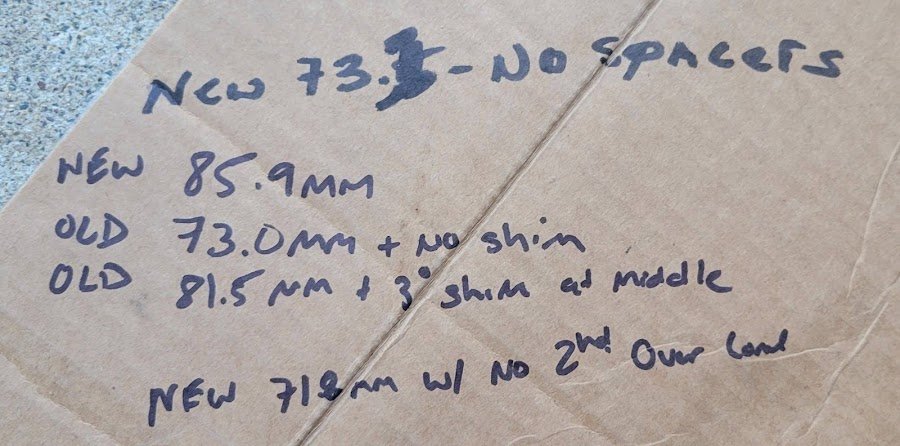 New - No Spacers
NEW 85.9MM
OLD 73.0MM + No shim
OLD 81.5 MM + 3° shim at Middle
NEW w/ No 2nd Over Load